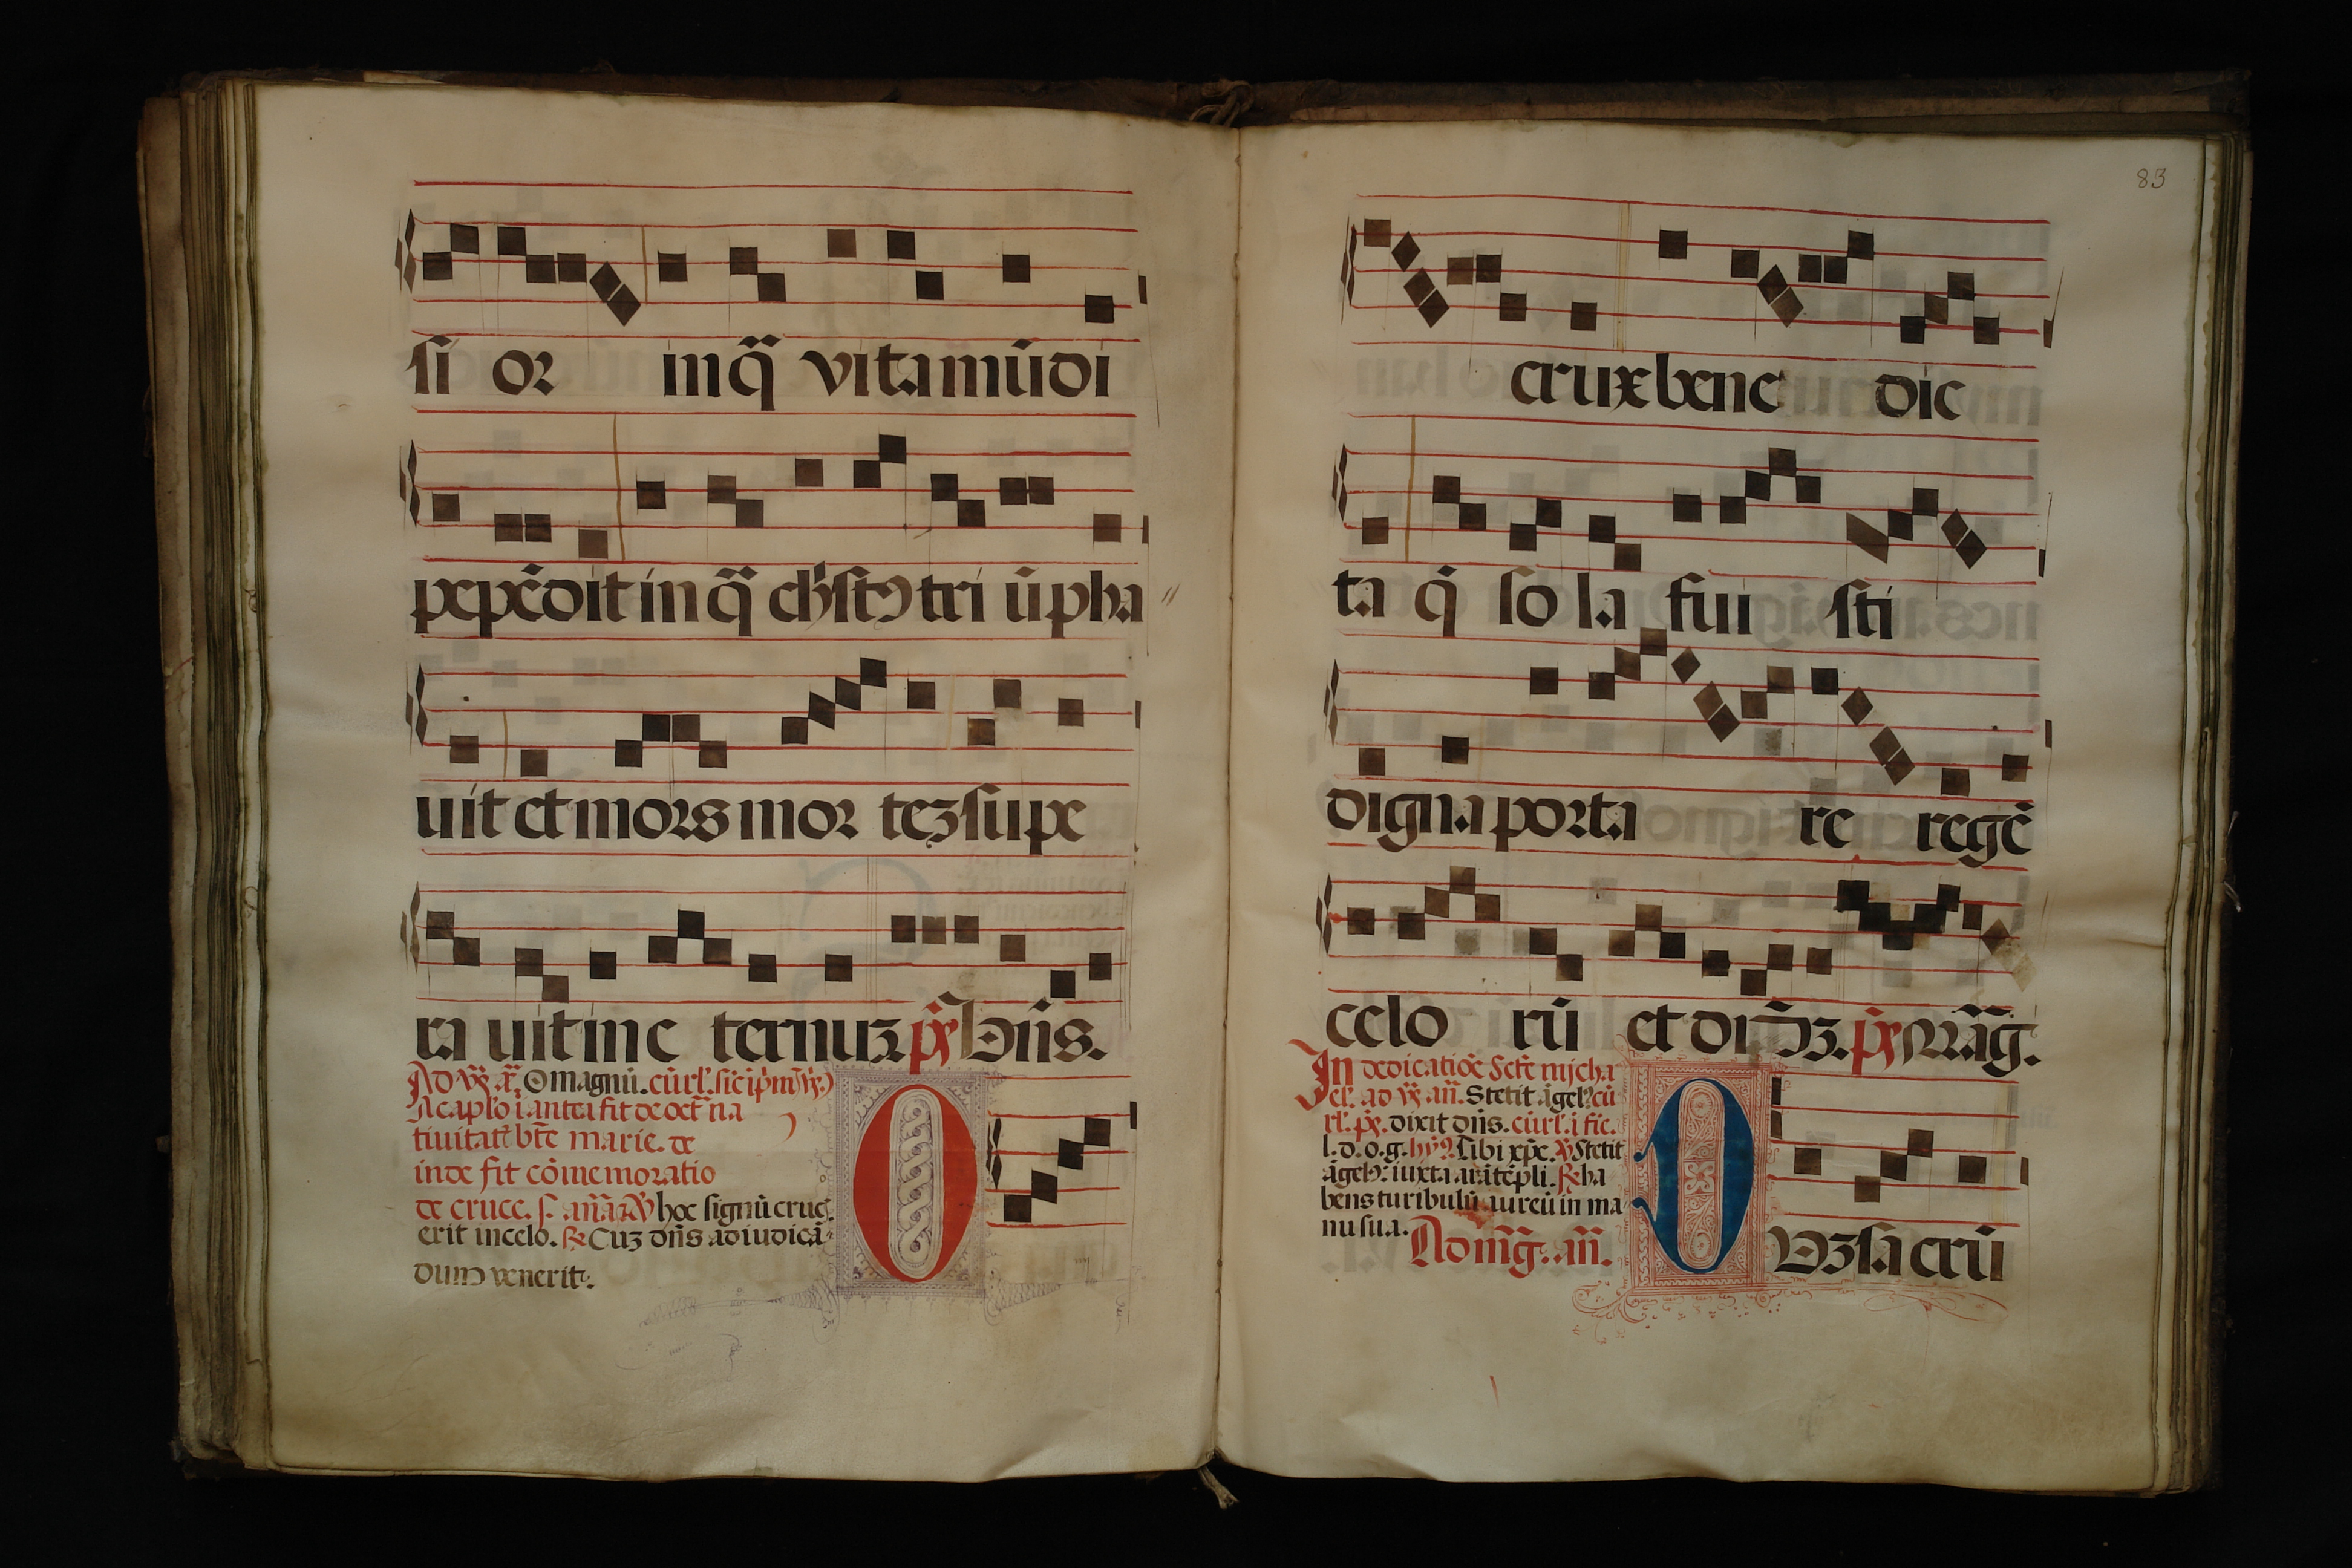 si or inq̄ vita mūdi
pependit in q̄ ch'st9 tri ūpha
uit et mors mor teʒ supe
ra uit in e ternuʒ. p̄s. Dn̄s.
Ad vs̄. a. O magnū. cūrl'.
A capl'o
tiuitat̄ bt̄e marie. de
inde fit cōmemoratio
de cruce. hoc signū cruc̄
erit in celo. ℟ Cuʒ dn̄s ad iudicā
dum venerit.
O
83
crux bene dic
ta q̄ so la fui sti
digna porta re regē
celo rū et dn̄ʒ. p̄s. Māg.
In dedicatiōe Scti micha
el'. ad vs̄. an̄. Stetit āgel9. cū
rl. ps̄. dixit dn̄s. cūrl'. i fic.
l. d. o. g. hy9. Tibi xp̄e. ℣ Stetit
āgel9. iuxta arā tēpli. ℟ ha
bens turibulū aureū in ma
nu sua.
Ad mg̃. an̄.
D
Vʒ sacrū